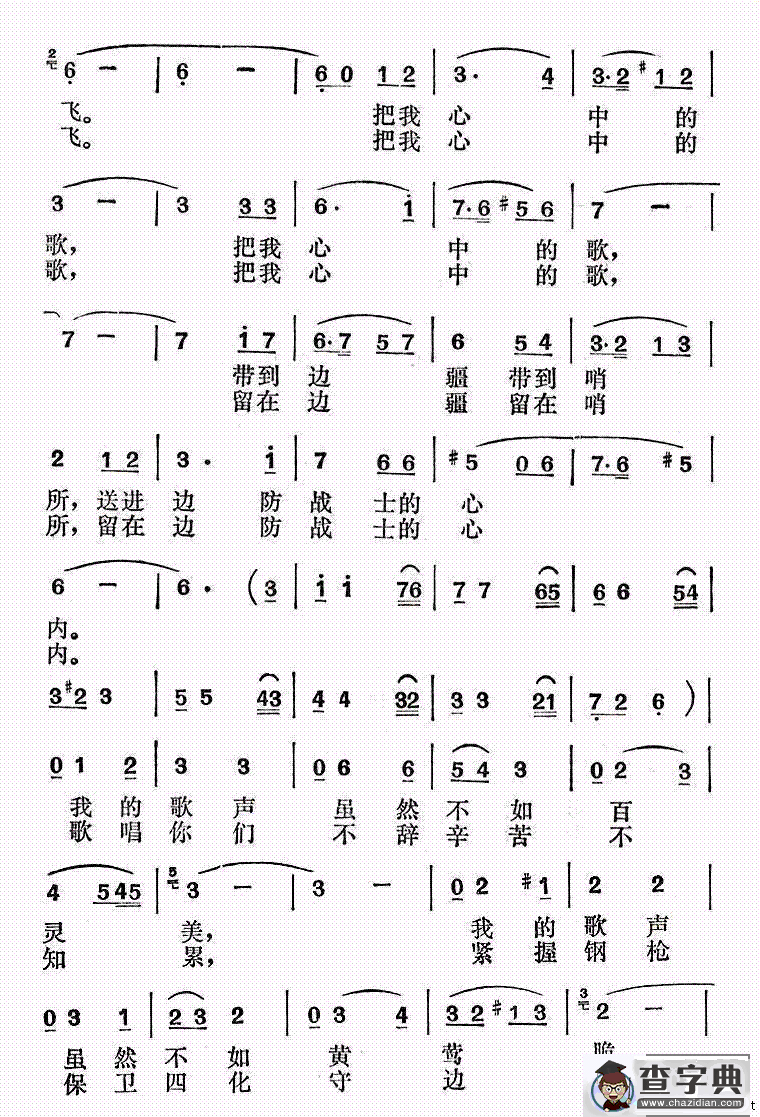 2 6 — | 6 — | 6 0 1 2 | 3 · 4 | 3 · 2 #1 2 |
飞。 把我 心 中 的
飞。 把我 心 中 的
3 — | 3 3 3 | 6 · i | 7 · 6 #5 6 | 7 — |
歌, 把我 心 中 的 歌,
歌, 把我 心 中 的 歌,
7 — | 7 i 7 | 6 · 7 5 7 | 6 5 4 | 3 · 2 1 3 |
带到 边 疆 带到 哨
留在 边 疆 留在 哨
2 1 2 | 3 · i | 7 6 6 | #5 0 6 | 7 · 6 #5 |
所, 送进 边 防 战 士的 心
所, 留在 边 防 战 士的 心
6 — | 6 · ( 3 | i i 76 | 7 7 65 | 6 6 54 |
内。
内。
3 #2 3 | 5 5 43 | 4 4 32 | 3 3 21 | 7 2 6 ) |
0 1 2 | 3 3 | 0 6 6 | 5 4 3 | 0 2 3 |
我 的 歌 声 虽 然 不 如 百
歌 唱 你 们 不 辞 辛 苦 不
4 5 45 | 5 3 — | 3 — | 0 2 #1 | 2 2 |
灵 美, 我 的 歌 声
知 累, 紧 握 钢 枪
0 3 1 | 2 3 2 | 0 3 4 | 3 2 #1 3 | 3 2 — |
虽 然 不 如 黄 莺
保 卫 四 化 守 边
查字典
www.chazidian.com
t